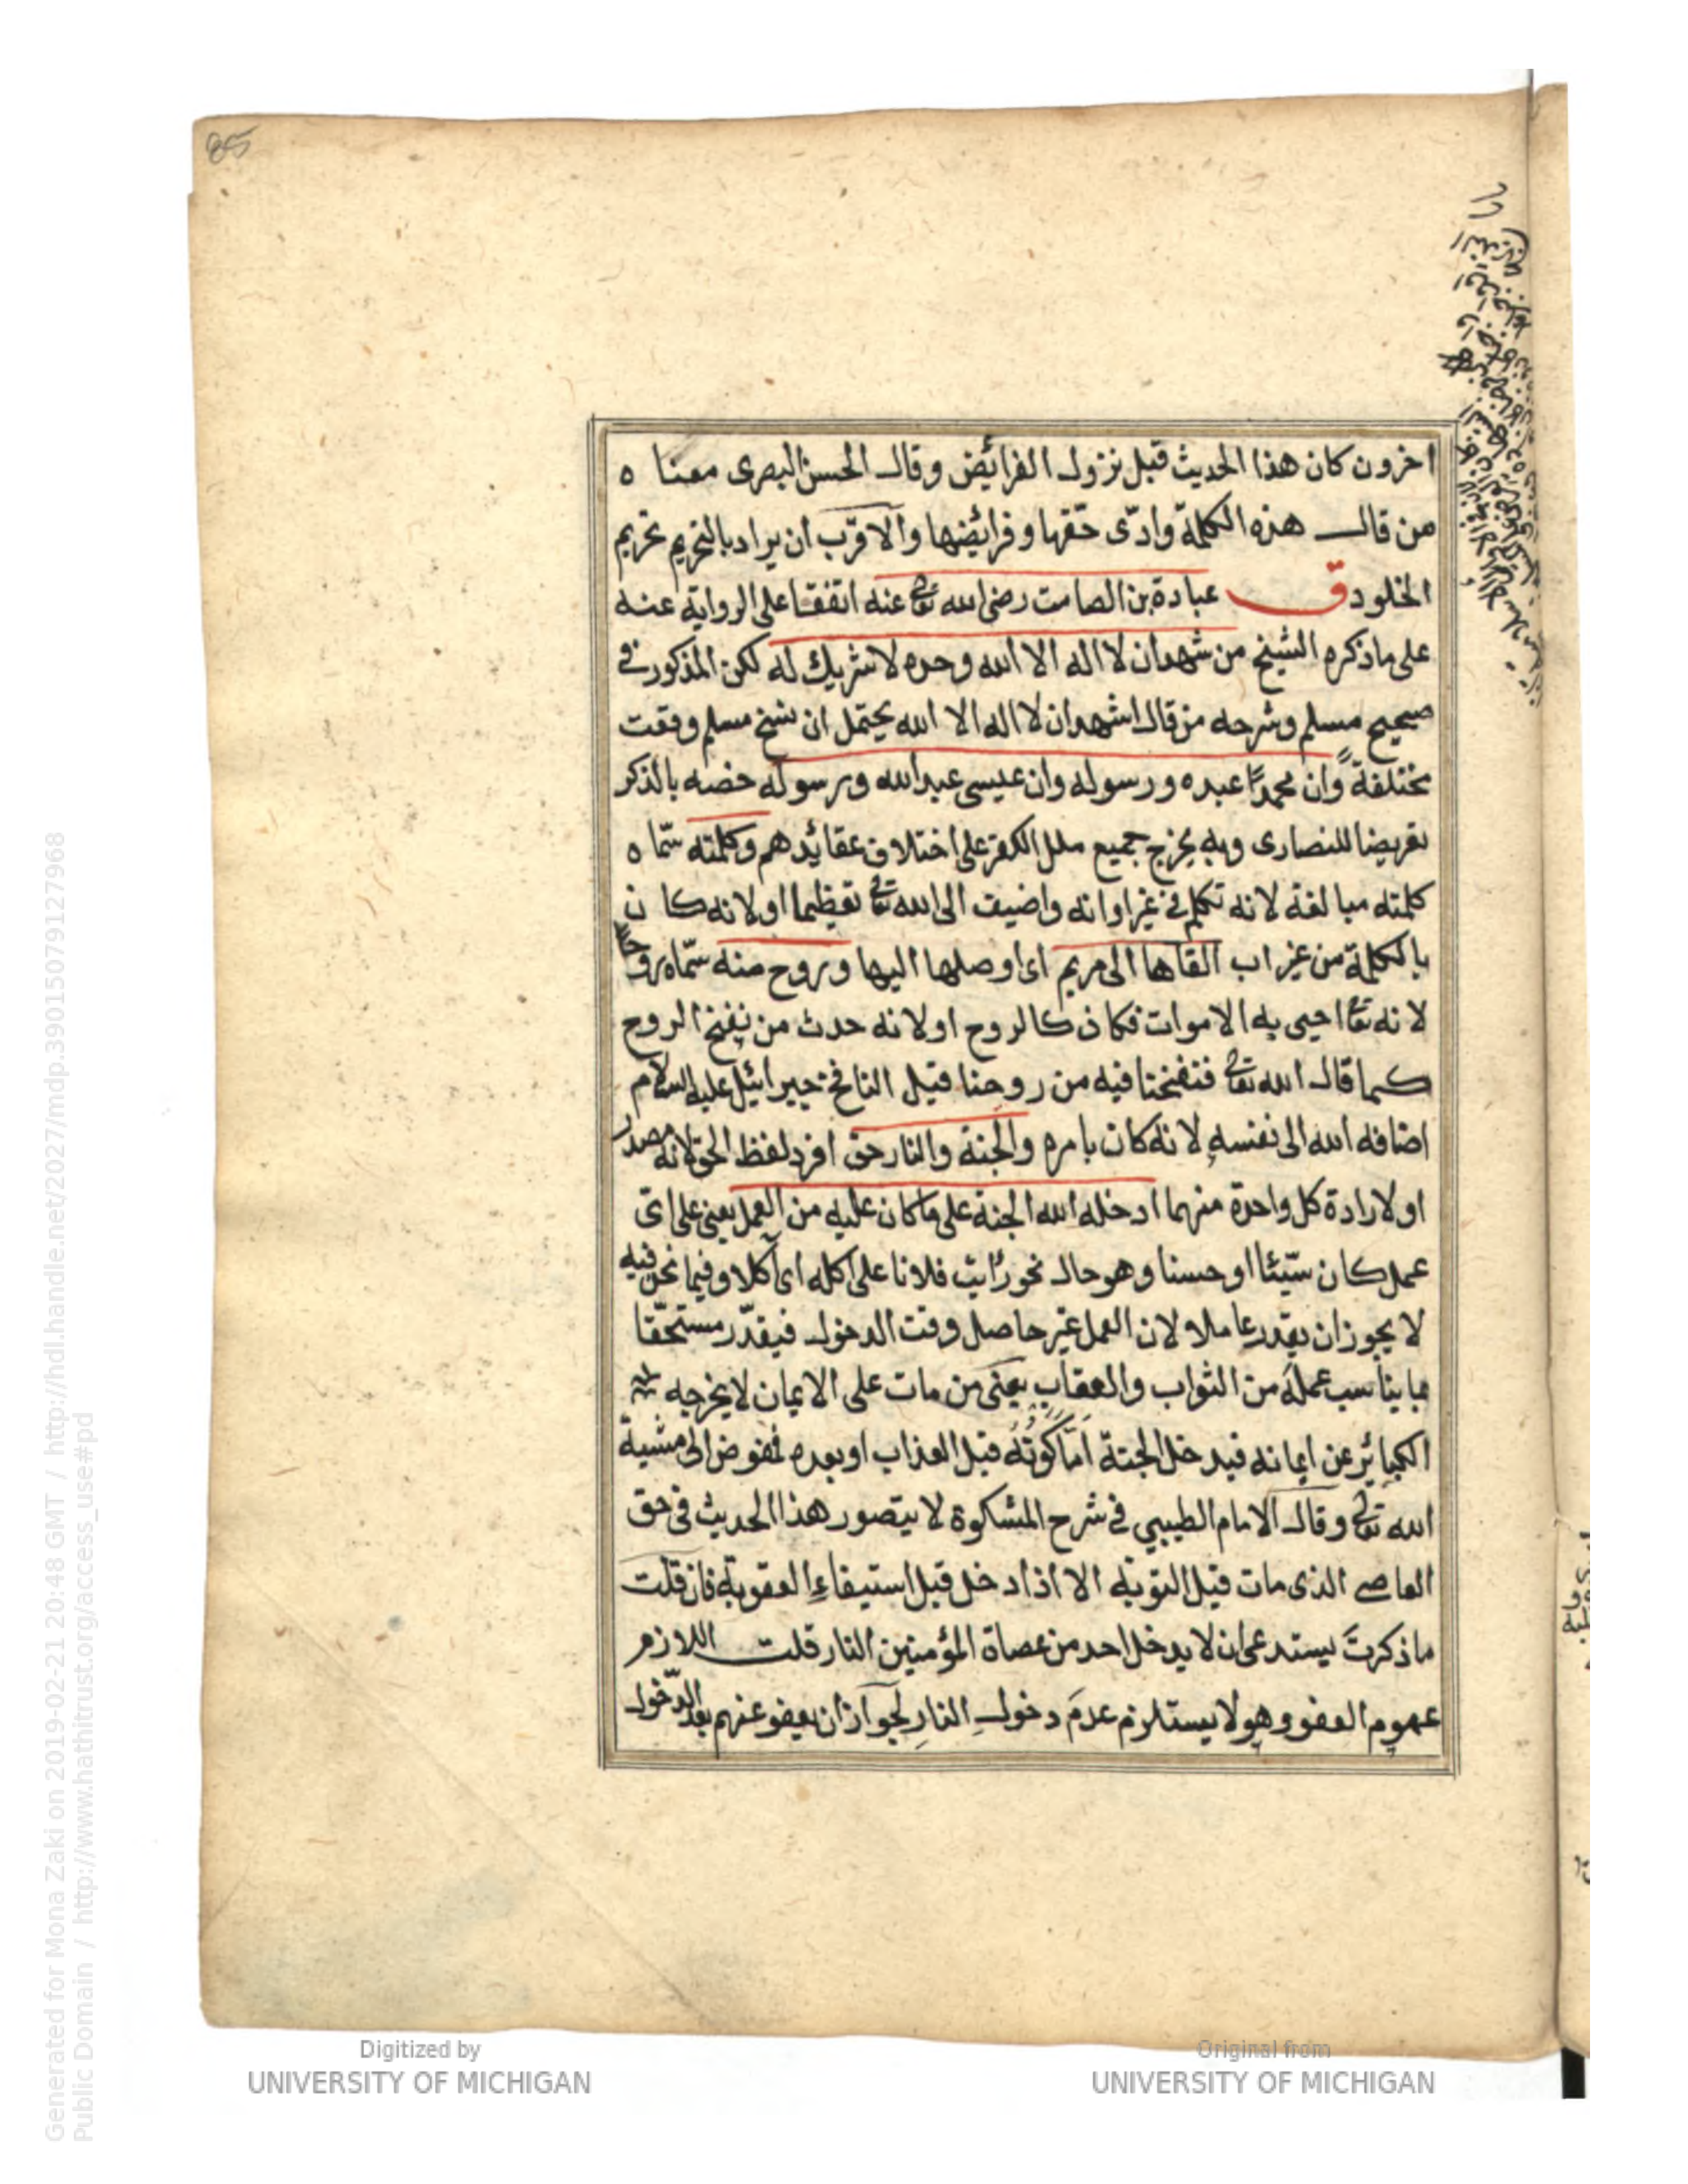 85
اخرون كان هذا الحديث قبل نزول الفرائض وقال الحسن البصرى معنا ه
من قال هذه الكلمة وادّى حقها وفرائضها والاقرب ان يراد بالتحريم تحريم
الخلود ق عبادة بن الصامت رضى الله تعالى عنه اتفقا على الرواية عنه
على ماذكره الشيخ من شهد ان لا اله الا الله وحده لا شريك له لكن المذكور فى
صحيح مسلم وشرحه من قال اشهد ان لا اله الا الله يحتمل ان نسخ مسلم وقعت
مختلفة وان محمدًا عبده ورسوله وان عيسى عبد الله ورسوله خصه بالذكر
تعريضا للنصارى وبه يخرج جميع ملل الكفر على اختلاف عقائدهم وكلمته سمّا ه
كلمته مبالغة لانه تكلم فى غير اوانه واضيف الى الله تعالى تعظيما او لانه كا ن
بالكلمة من غير اب القاها الى مريم اى اوصلها اليها وروح منه سمّاه روحًا
لانه تعا احيى به الاموات فكان كالروح او لانه حدث من نفخ الروح
كما قال الله تعالى فنفخنا فيه من روحنا قيل النافخ جبرائيل عليه السلام
اضافه الله الى نفسه لانه كان بامره والجنة والنار حق افرد لفظ الحق لانه مصدر
او لارادة كل واحدة منهما ادخله الله الجنة على ما كان عليه من العمل يعنى على اىّ
عمل كان سيّئا او حسنا وهو حال نحو رأيت فلانا على اكله اى آكلا وفيما نحن فيه
لا يجوز ان يقدر عاملا لان العمل غير حاصل وقت الدخول فيقدّر مستحقّا
بما يناسب عمله من الثواب والعقاب يعنى من مات على الايمان لا يخرجه
الكبائر عن ايمانه فيدخل الجنة امّا كونُه قبل العذاب او بعده فمفوض الى مشية
الله تعالى وقال الامام الطيبى فى شرح المشكوة لا يتصور هذا الحديث فى حق
العاصى الذى مات قبل التوبة الا اذا دخل قبل استيفاء العقوبة فان قلت
ما ذكرتَ يستدعى ان لا يدخل احد من عصاة المؤمنين النار قلت اللازم
عموم العفو وهو لا يستلزم عدمَ دخول النارِ لجواز ان يعفو عنهم بعد الدّخول
Digitized by
UNIVERSITY OF MICHIGAN
Original from
UNIVERSITY OF MICHIGAN
Generated for Mona Zaki on 2019-02-21 20:48 GMT / http://hdl.handle.net/2027/mdp.39015079127968
Public Domain / http://www.hathitrust.org/access_use#pd